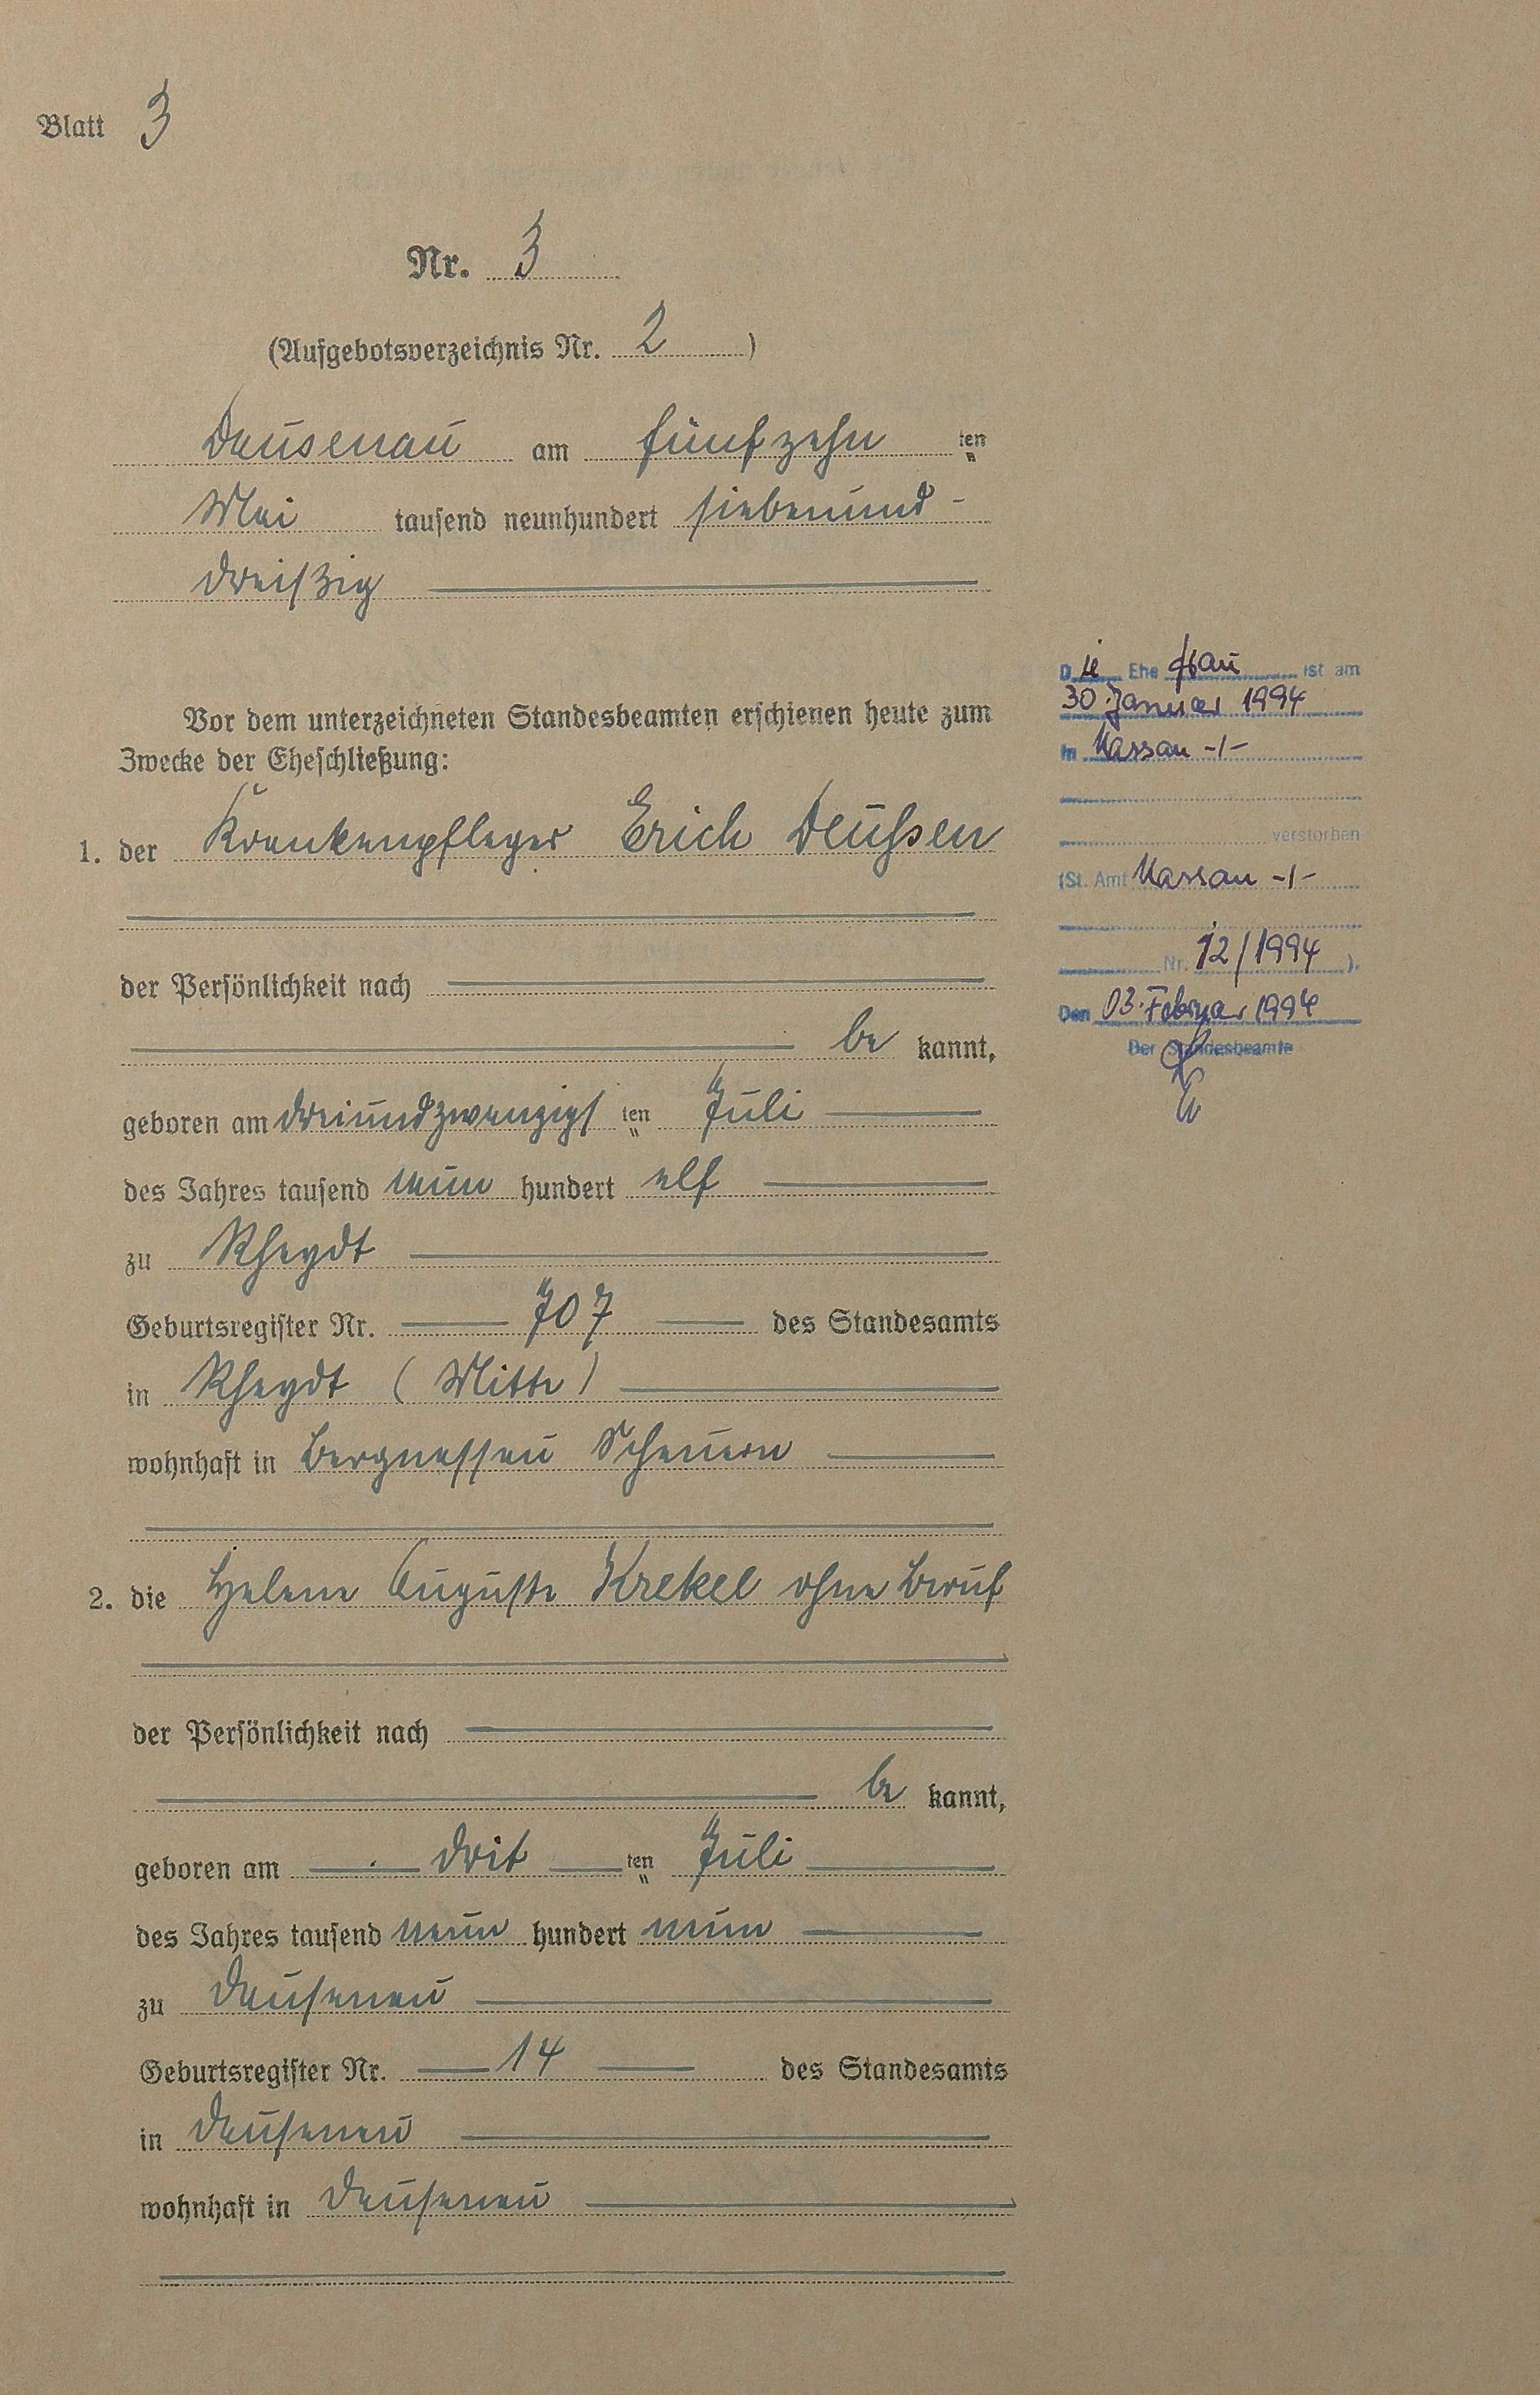 Blatt 3
Nr. 3
(Aufgebotsverzeichnis Nr. 2)
Dausenau am fünfzehn ten
Mai tausend neunhundert siebenund-
dreißig
Vor dem unterzeichneten Standesbeamten erschienen heute zum
Zwecke der Eheschließung:
1. der Krankenpfleger Erich Deußen
der Persönlichkeit nach
be kannt,
geboren am dreiundzwanzigs ten Juli
des Jahres tausend neun hundert elf
zu Rheydt
Geburtsregister Nr. 707 des Standesamts
in Rheydt (Mitte)
wohnhaft in Bergnassau Scheuern
2. die Helene Auguste Krekel ohne Beruf
der Persönlichkeit nach
be kannt,
geboren am drit ten Juli
des Jahres tausend neun hundert neun
zu Dausenau
Geburtsregister Nr. 14 des Standesamts
in Dausenau
wohnhaft in Dausenau
Die Ehefrau ist am
30. Januar 1994
in Nassau -/-
verstorben
(St. Amt Nassau -/-
Nr. 12/1994 ).
Den 03. Februar 1994
Der Standesbeamte